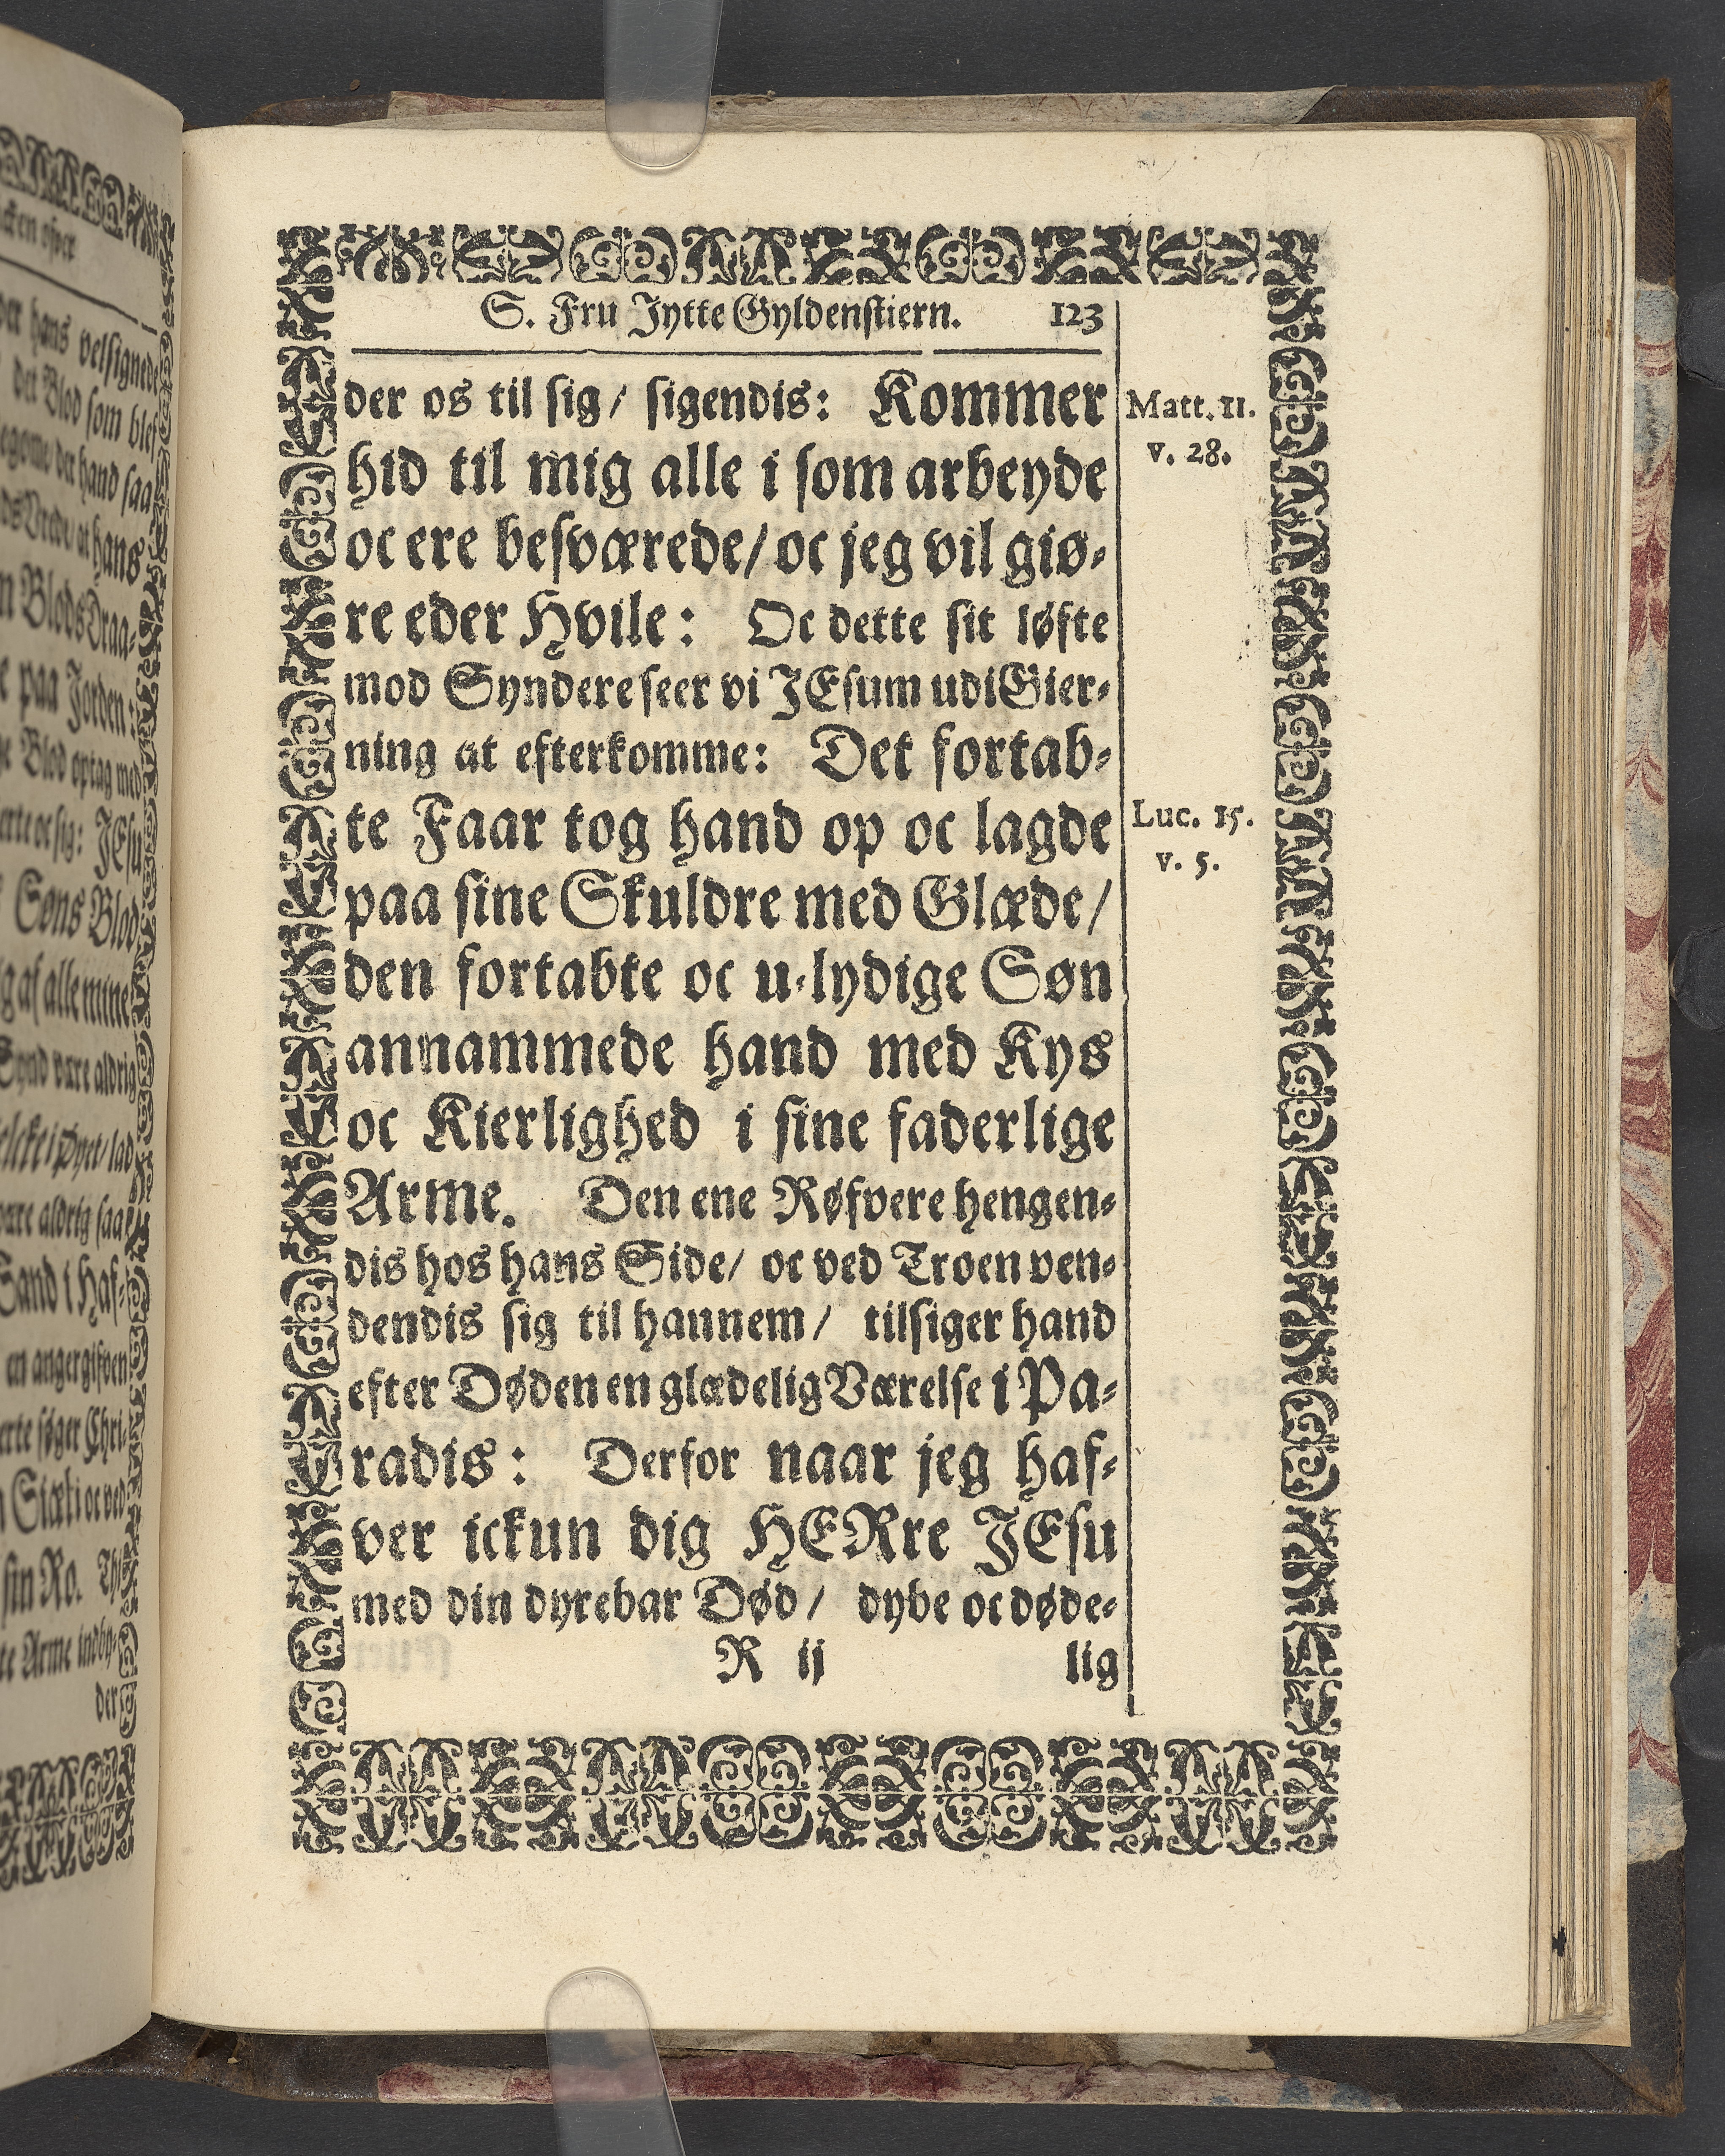 S. Fru Jytte Gyldenstiern. 123
der os til sig/ sigendis: Kommer
Matt. 11.
v. 28.
hid til mig alle i som arbeyde
oc ere besværede/ oc jeg vil giø-
re eder Hvile: Oc dette sit løfte
mod Syndere seer vi JEsum udi Gier-
ning at efterkomme: Det fortab-
te Faar tog hand op oc lagde
Luc. 15.
v. 5.
paa sine Skuldre med Glæde/
den fortabte oc u-lydige Søn
annammede hand med Kys
oc Kierlighed i sine faderlige
Arme. Den ene Røfvere hengen-
dis hos hans Side/ oc ved Troen ven-
dendis sig til hannem/ tilsiger hand
efter Døden en glædelig Værelse i Pa-
radis: Derfor naar jeg haf-
ver ickun dig HERre JEsu
med din dyrebar Død/ dybe oc døde-
R ij lig